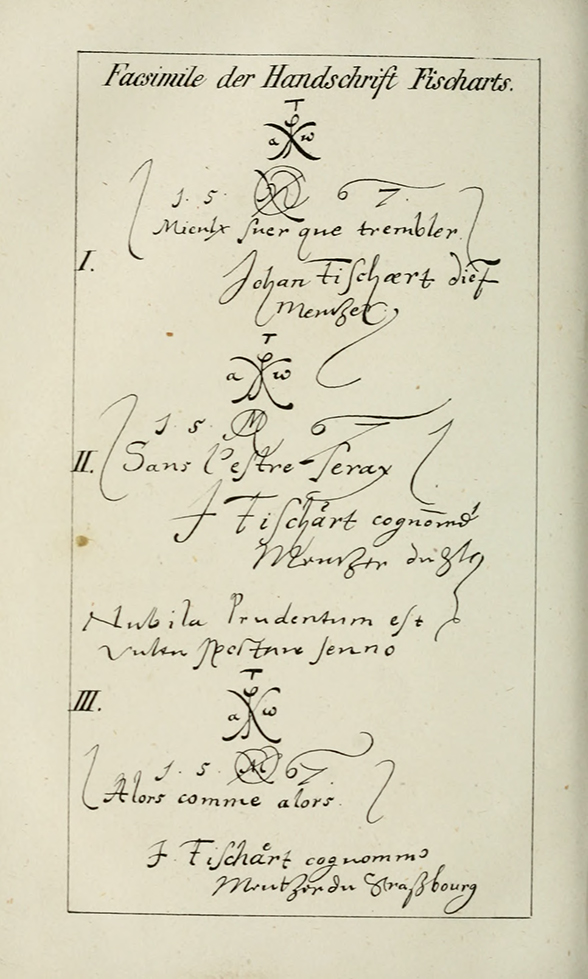 Facsimile der Handschrift Fischarts.
T
α ω
1. 5. M 6 7.
Mieulx suer que trembler
I.
Johan Fischært dict
Mentzer
T
α ω
1. 5. M 6 7
II. Sans l'estre Serax
J Fischårt cognomē
Mentzer du
Nubila Prudentum est
spectare
T
III.
α ω
1. 5. M 67.
Alors comme alors.
J Fischårt cognommé
Mentzer du Straßbourg